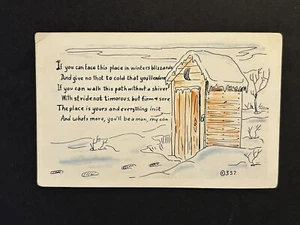 If you can face this place in winters blizzard
And give no thot to cold that you'll endure
If you can walk this path without a shiver
With stride not timorous, but firm & sure
The place is yours and everything in it
And whats more, you'll be a man, my son
©357